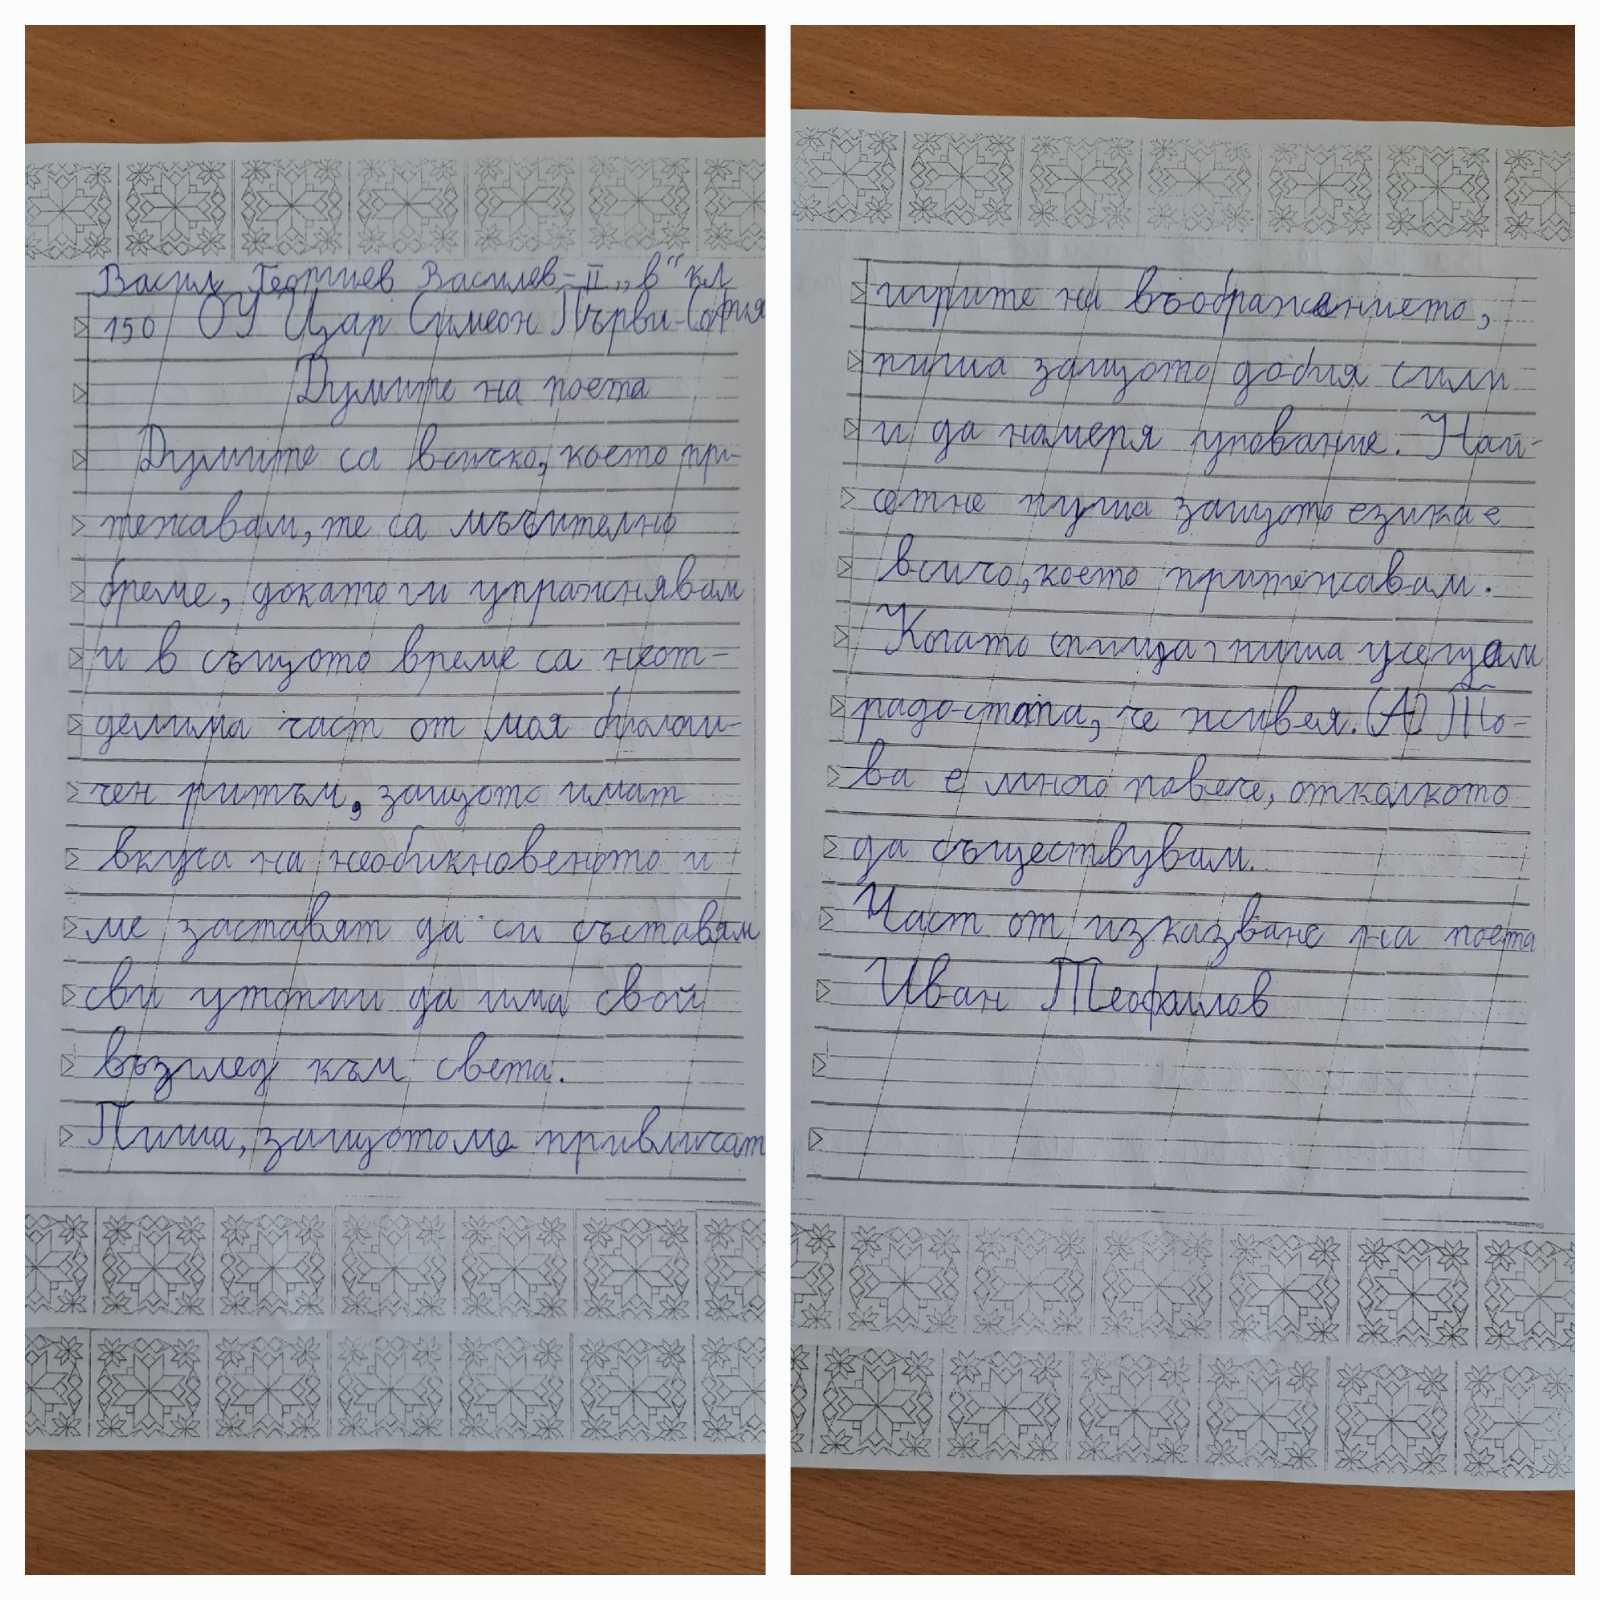 Васил Георгиев Василев - II "в" кл
150 ОУ Цар Симеон Първи - София
Думите на поета
Думите са всичко, което при-
тежавам, те са мъчително
бреме, докато ги упражнявам
и в същото време са неот-
делима част от моя биологи-
чен ритъм, защото имат
вкуса на необикновеното и
ме заставят да си съставям
сви утопии да има свой
възглед към света.
Пиша, защото ме привличат
игрите на въображението,
пиша защото добия сили
и да намеря упование. Най-
сетне пиша защото езика е
всичо, което притежавам.
Когато пиша усещам
радостата, че живея. (А) То-
ва е много повече, отколкото
да съществувам.
Част от изказване на поета
Иван Теофилов